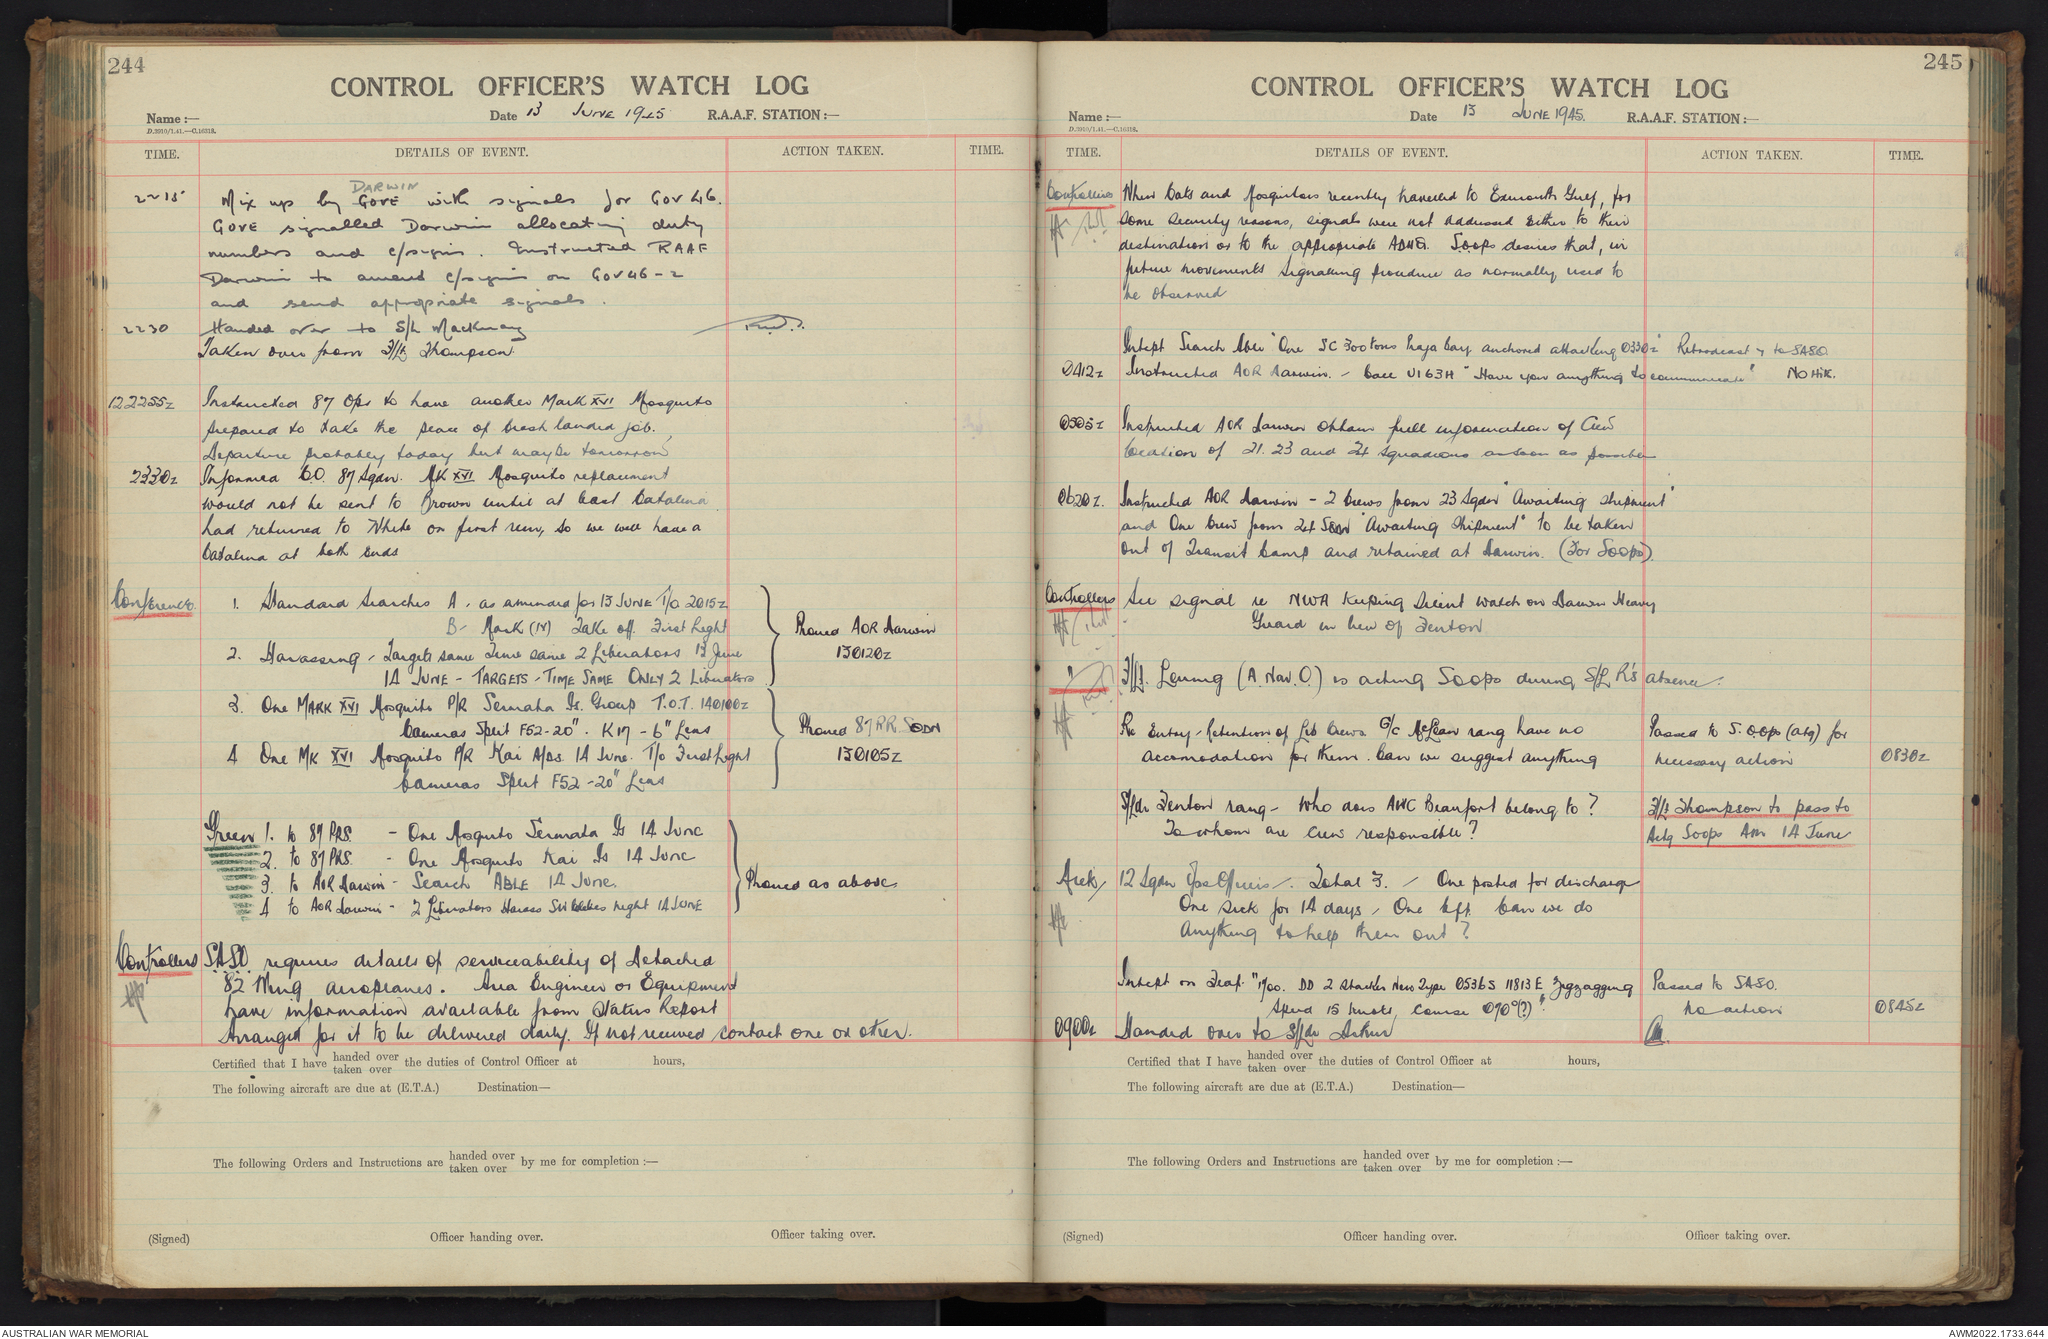 244
CONTROL OFFICER'S WATCH LOG
Name :— Date 13 JUNE 1945 R.A.A.F. STATION :—
D.3910/1.41.—C.10318.
TIME. DETAILS OF EVENT. ACTION TAKEN. TIME.
DARWIN
2215 Mix up by GOVE with signals for GOV 46.
GOVE signalled Darwin allocating duty
numbers and c/signs. Instructed RAAF
Darwin to amend c/signs on GOV46-2
and send appropriate signals.
2230 Handed over to S/L Mackinnay
Taken over from F/Lt Thompson
122255z Instructed 87 Ops to have another Mark XVI Mosquito
prepared to take the place of crash landed job.
Departure probably today but maybe tomorrow
2330z Informed CO. 87 Sqdn. MK XVI Mosquito replacement
would not be sent to Brown until at least Catalina
had returned to White on first run, so we will have a
Catalina at both ends
Conference 1. Standard Searches A. as amended for 13 JUNE T/O 2015z
B- Mark (N) Take off First Light
2. Harassing - Targets same Time same 2 Liberators 13 June
14 JUNE - TARGETS - TIME SAME ONLY 2 Liberators
Phoned AOR Darwin
130120z
3. One MARK XVI Mosquito P/R Sermata Is. Group T.O.T. 140100z
Cameras Split F52-20" . K17 - 6" Lens
4 One MK XVI Mosquito P/R Kai A/Ds. 14 June. T/O First Light
Cameras Split F52 - 20" Lens
Phoned 87 P.R. SQDN
130105z
Green 1. to 87 PRS - One Mosquito Sermata Is 14 June
2. to 87 PRS. - One Mosquito Kai Is 14 June
3. to AOR Darwin - Search ABLE 14 June.
4 to AOR Darwin - 2 Liberators Harass Sth Celebes night 14 JUNE
Phoned as above
Controllers SASO requires details of serviceability of Detached
82 Wing aeroplanes. Area Engineer or Equipment
have information available from Status Report
Arranged for it to be delivered daily. If not received contact one or other.
Certified that I have handed over taken over the duties of Control Officer at hours,
The following aircraft are due at (E.T.A.) Destination—
The following Orders and Instructions are handed over taken over by me for completion :—
(Signed) Officer handing over. Officer taking over.
245
CONTROL OFFICER'S WATCH LOG
Name :— Date 13 JUNE 1945. R.A.A.F. STATION :—
D.3910/1.41.—C.10318.
TIME. DETAILS OF EVENT. ACTION TAKEN. TIME.
Controllers When Cats and Mosquitos recently travelled to Exmouth Gulf, for
some security reasons, signals were not addressed either to their
destination or to the appropriate ADHQ. SOOPS desires that, in
future movements signalling procedure as normally used to
be observed
Intept Search Able "One SC 300 tons Praja bay anchored attacking 0330z" Rebroadcast & to SASO.
0412z Instructed AOR Darwin. - Call U163H "Have you anything to communicate" No Hit.
0505z Instructed AOR Darwin obtain full information of Crew
location of 21. 23 and 24 Squadrons as soon as possible
0620z. Instructed AOR Darwin - 2 Crews from 23 Sqdn "Awaiting shipment"
and One Crew from 24 SQDN "Awaiting Shipment" to be taken
out of Transit Camp and retained at Darwin. (For Soops).
Controllers See signal re NWA keeping silent watch on Darwin Heavy
Guard in lieu of Fenton
" F/Lt. Leunig (A. Nav. O.) is acting Soops during S/L R's absence.
Re Entry - Retention of Lib Crews G/C McLean rang have no
accomodation for them. Can we suggest anything
Passed to S.OOps (atg) for
necessary action 0830z
S/Ldr Fenton rang - Who does AWC Beaufort belong to?
To whom are crew responsible?
F/Lt Thompson to pass to
Actg Soops Am 14 June
12 Sqdn Ops Officers. Total 3. - One posted for discharge
One sick for 14 days, One left. Can we do
anything to help them out?
Intept on Leaf. "1700. DD 2 Stacker New Type 0536S 11813E Zigzagging
Speed 15 knots, course 090°(?)."
Passed to SASO.
No action 0845z
0900z Handed over to S/Ldr Arthur
Certified that I have handed over taken over the duties of Control Officer at hours,
The following aircraft are due at (E.T.A.) Destination—
The following Orders and Instructions are handed over taken over by me for completion :—
(Signed) Officer handing over. Officer taking over.
AUSTRALIAN WAR MEMORIAL
AWM2022.1733.644